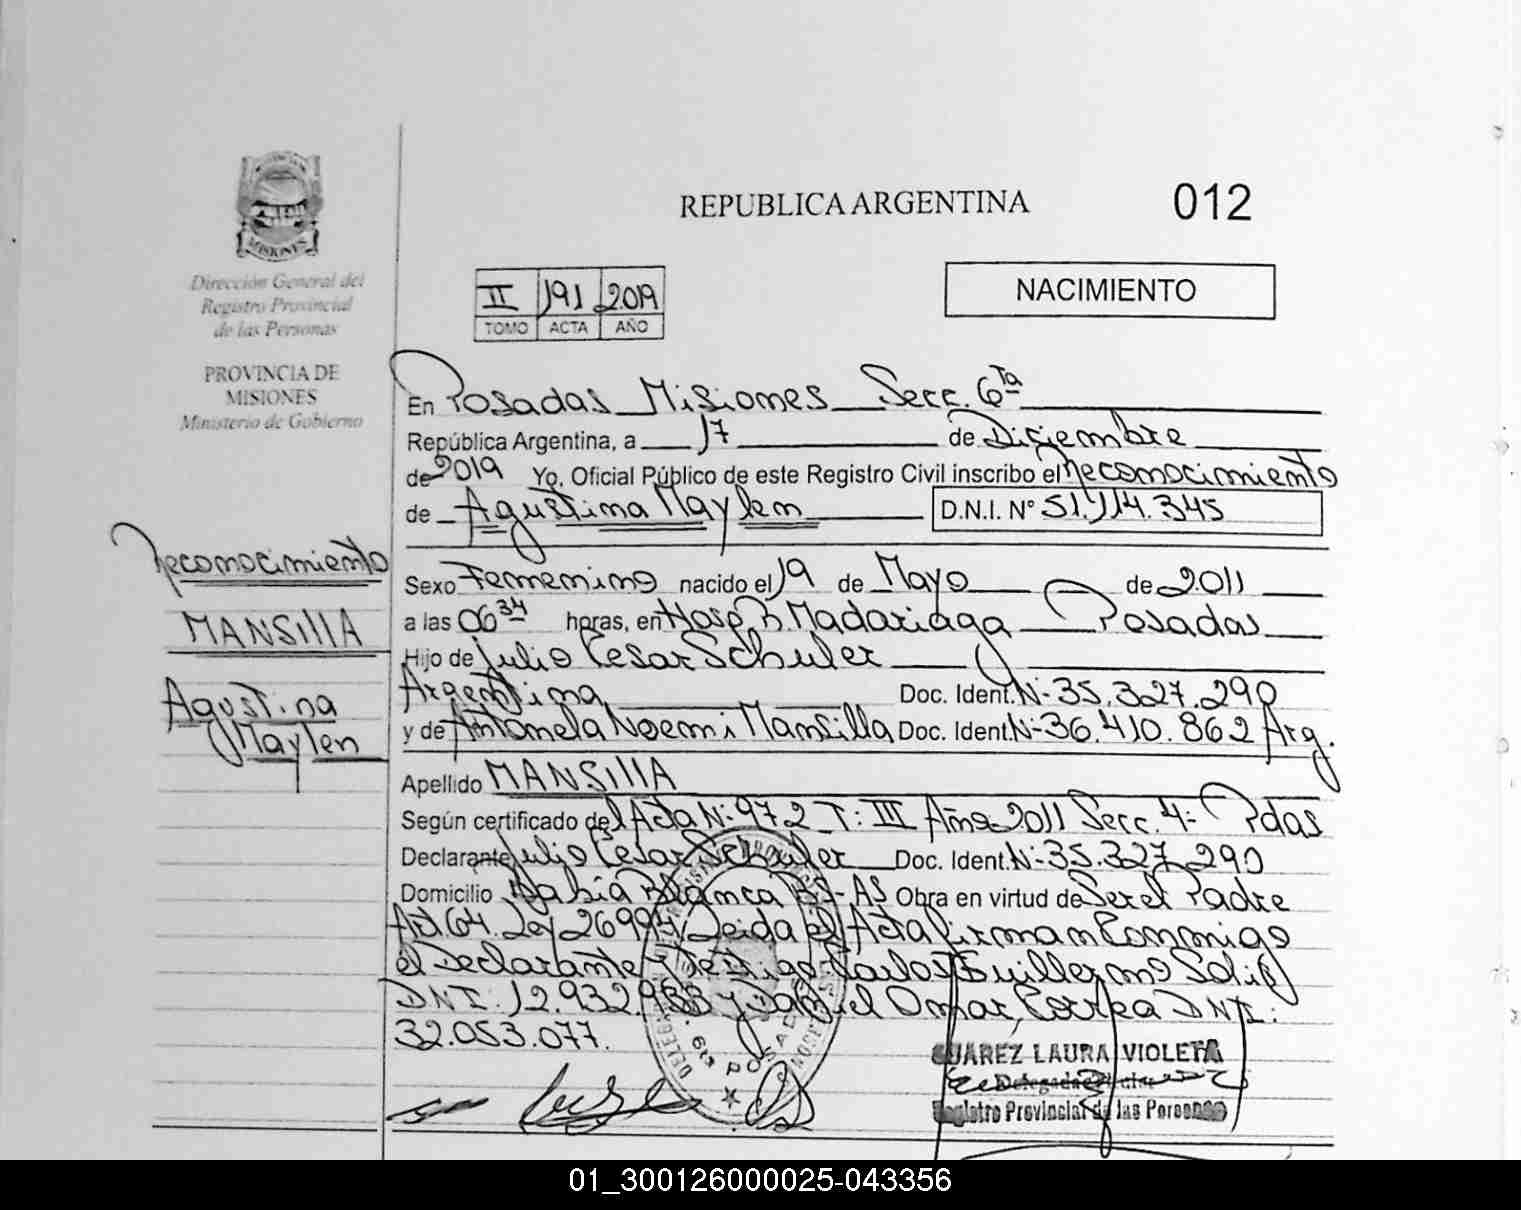 REPUBLICA ARGENTINA
012
MISIONES
Dirección General del
Registro Provincial
de las Personas
PROVINCIA DE
MISIONES
Ministerio de Gobierno
II 191 2019
TOMO ACTA AÑO
NACIMIENTO
En Posadas Misiones Secc. 6ta
República Argentina, a 17 de Diciembre
de 2019 Yo, Oficial Público de este Registro Civil inscribo el Reconocimiento
de Agustina Maylen D.N.I. N° 51.114.345
Reconocimiento
MANSIllA
Agustina
Maylen
Sexo Femenino nacido el 19 de Mayo de 2.011
a las 06 34 horas, en Hosp. R. Madariaga Posadas
Hijo de Julio Cesar Schuler
Argentina Doc. Ident. N- 35.327.290
y de Antonela Noemi Mansilla Doc. Ident. N- 36.410.862 Arg.
Apellido MANSIllA
Según certificado del Acta N: 972 T: III Año 2011 Secc. 4- Pdas
Declarante Julio Cesar Schuler Doc. Ident. N- 35.327.290
Domicilio Bahía Blanca BS-AS Obra en virtud de Ser el Padre
Art 64. Ley 26994 Leida el Acta firman Conmigo
el Declarante y Testigo Carlos Guillermo
DNI: 12.932.988 y Daniel Omar Correa DNI:
32.053.077.
SUAREZ LAURA VIOLETA
Delegada Titular
Registro Provincial de las Personas
01_300126000025-043356